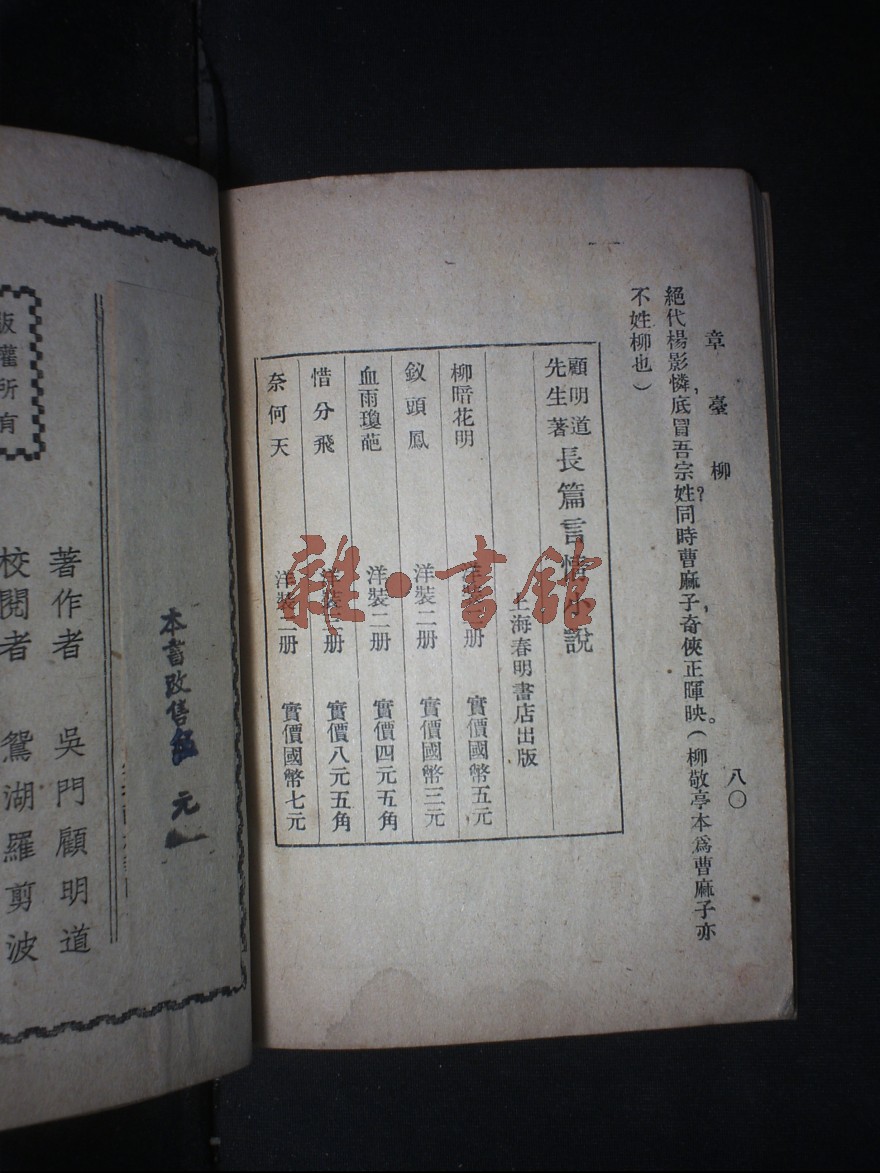 章臺柳
八〇
絕代楊影憐,底冒吾宗姓?同時曹麻子,奇俠正暉映。(柳敬亭本爲曹麻子亦
不姓柳也)
顧明道
先生著
長篇言情小說
上海春明書店出版
柳暗花明 洋裝二册 實價國幣五元
釵頭鳳 洋裝二册 實價國幣三元
血雨瓊葩 洋裝二册 實價國幣四元五角
惜分飛 洋裝二册 實價國幣八元五角
奈何天 洋裝二册 實價國幣七元
雜·書館
本書改售 元
著作者 吳門顧明道
校閱者 鴛湖羅剪波
版權所有